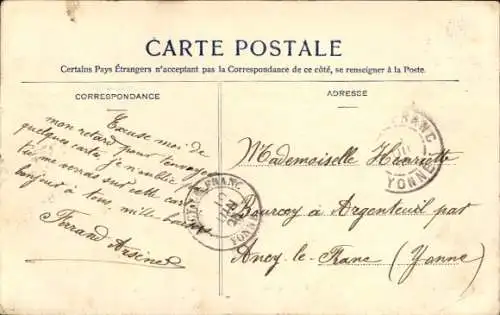 CARTE POSTALE
Certains Pays Étrangers n'acceptant pas la Correspondance de ce côté, se renseigner à la Poste.
CORRESPONDANCE
Excuse moi de
mon retard pour t'envoyer
quelques cartes je n'oublie pas
tu me verras sur cette carte
bonjour à tous, mille baisers
Ferrand Arsène
ADRESSE
Mademoiselle Henriette
à Argenteuil par
Ancy-le-Franc (Yonne)
FRANC
YONNE
FRANC
YONNE